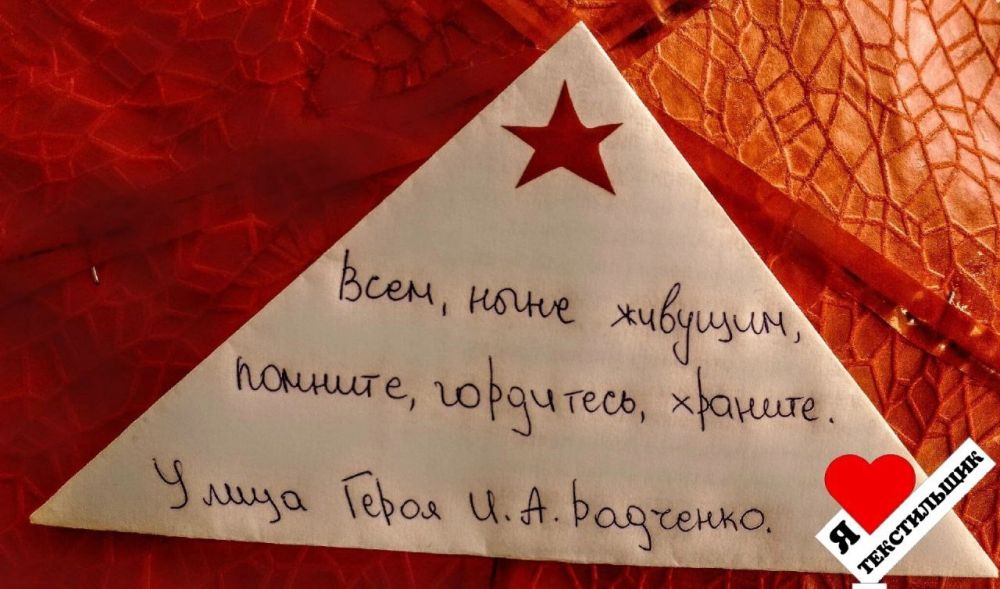 Всем, ныне живущим,
помните, гордитесь, храните.
Улица Героя И.А. Радченко.
Я
ТЕКСТИЛЬЩИК